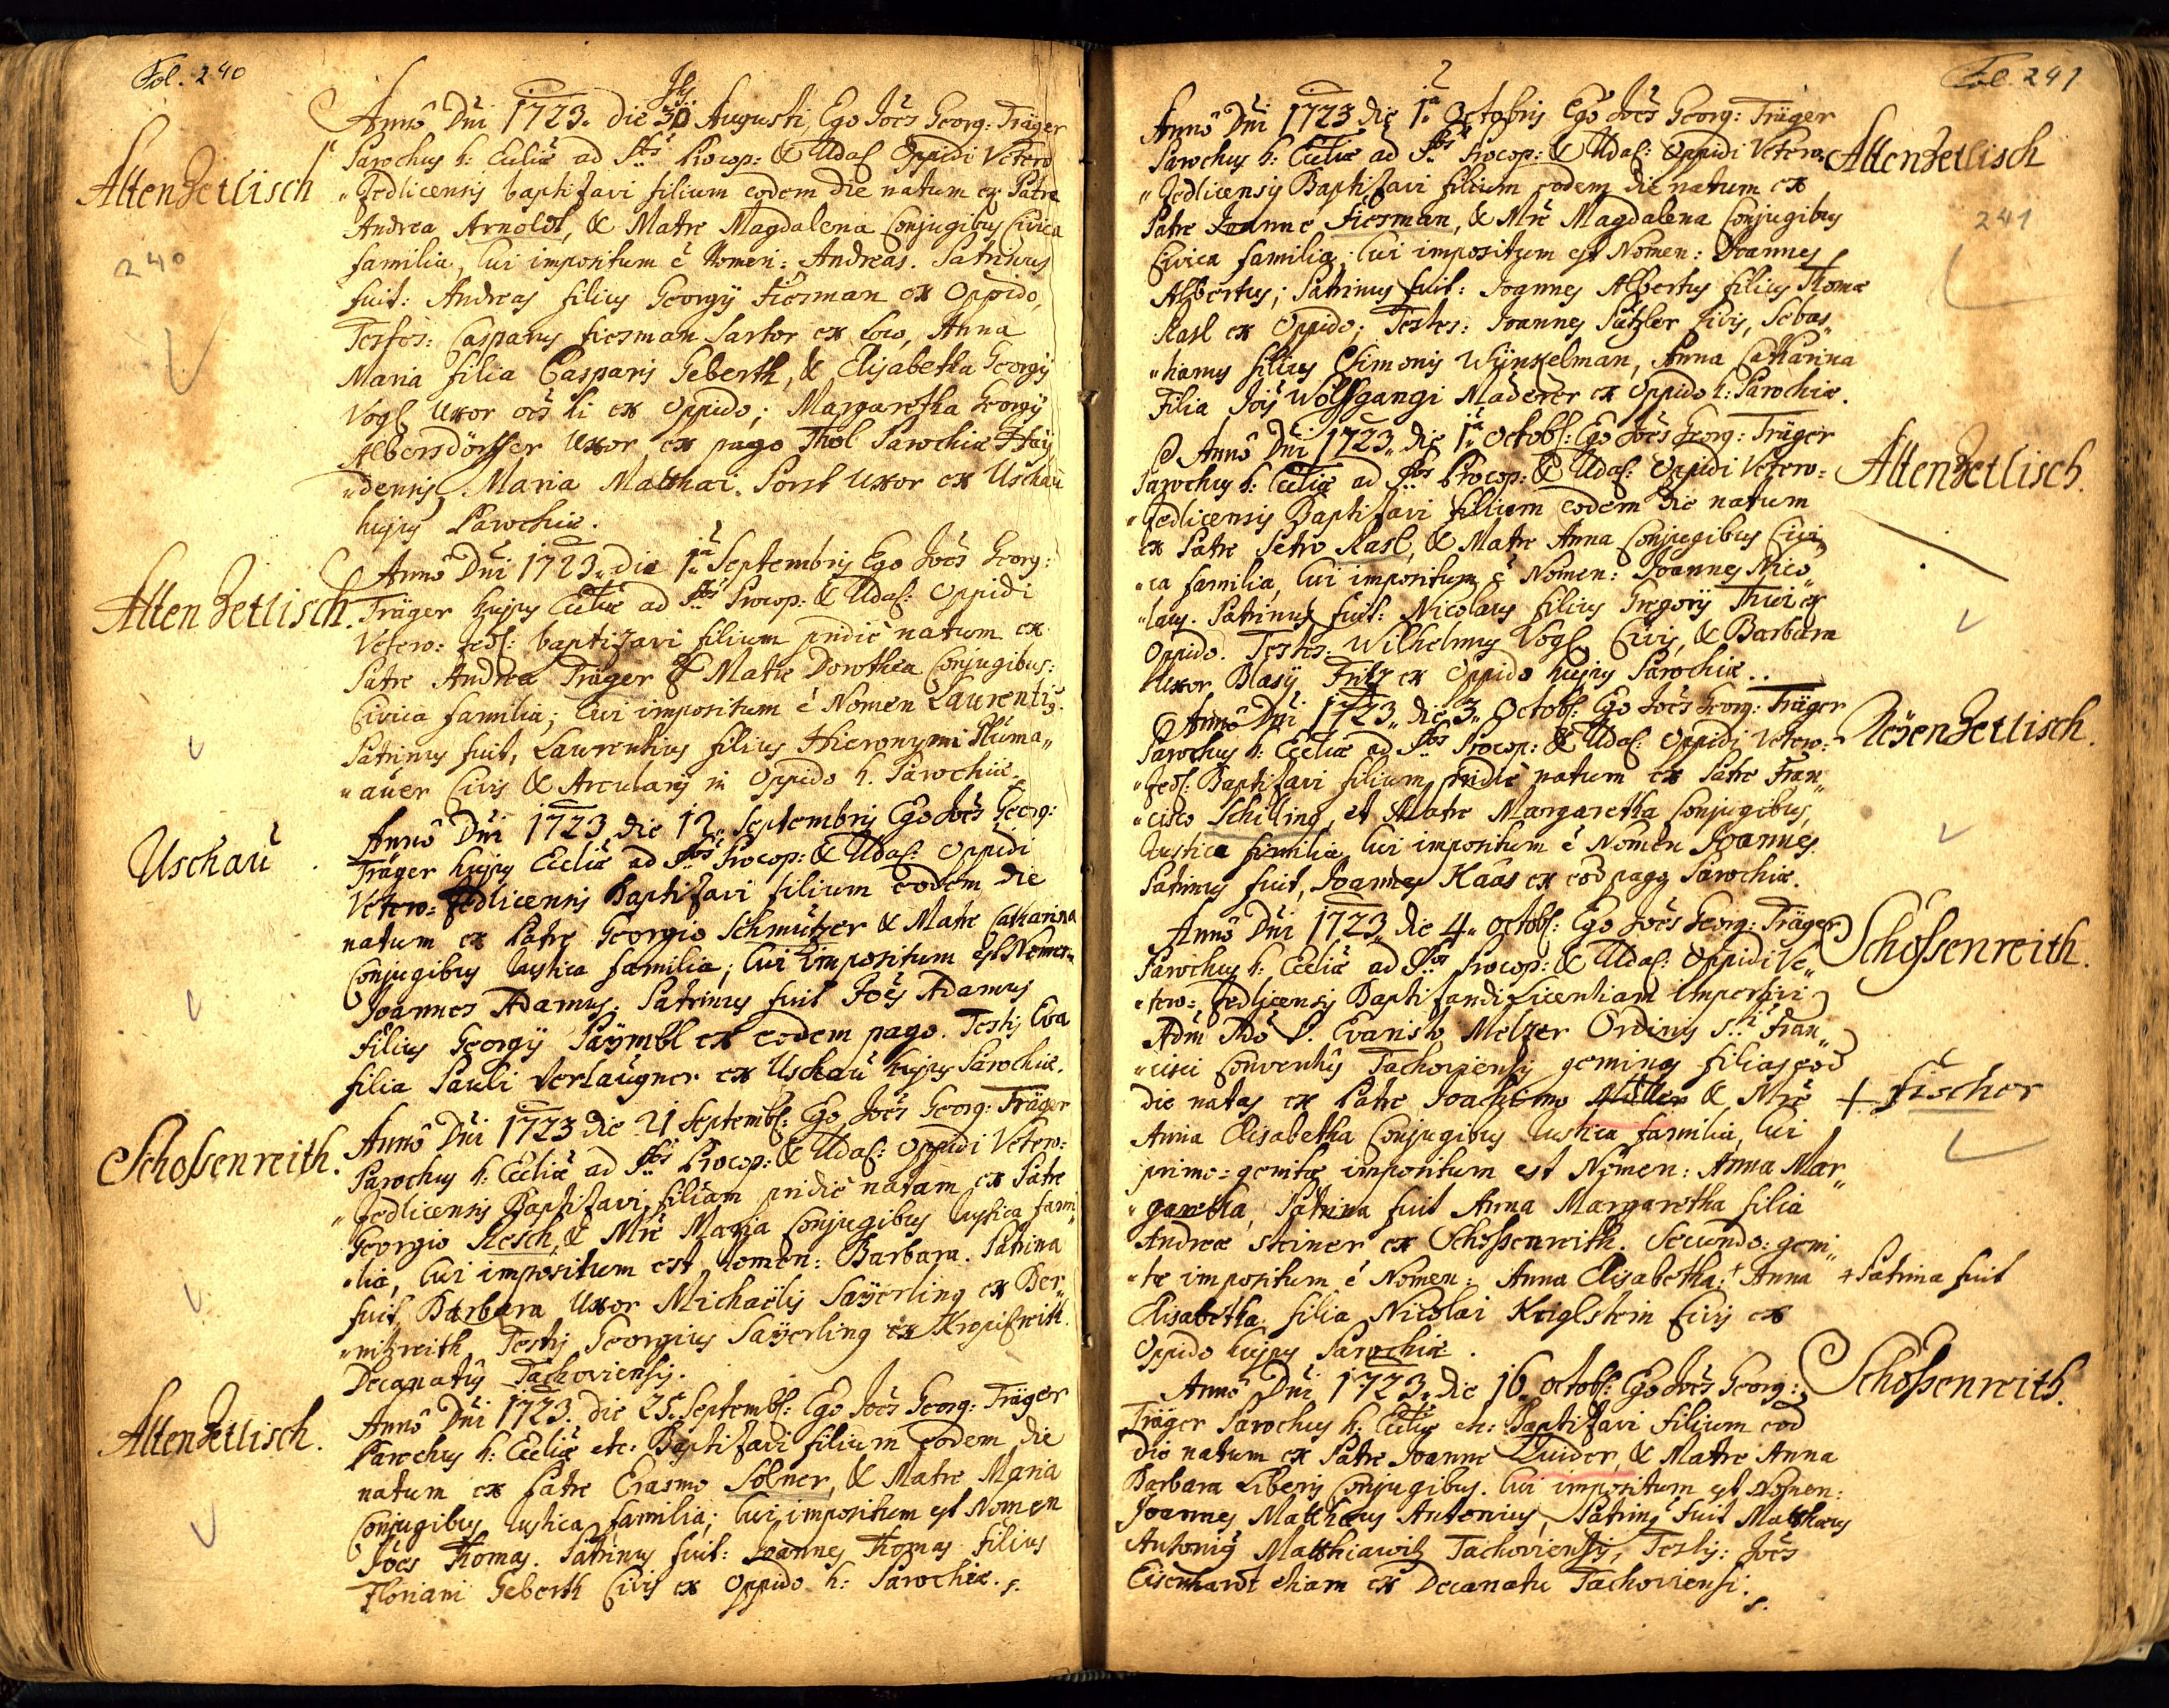 Fol. 240
Altenzetlisch
240
Annô Dñi 1723. die 30 Augusti, Ego Joẽs Georg: Träger
Parochus h: Eccliæ ad Stos Procop: & Udal: Oppidi Vetero
"Zedlicensis baptizavi filium eodem die natum ex Patre
Andrea Arnoldt, & Matre Magdalena Conjugibus Civica
familia, Cui impositum ẽ Nomen: Andreas. Patrinus
fuit: Andreas filius Georgÿ Fiesman ex Oppido,
Testes: Casparus Fiesman Sartor ex loco, Anna
Maria filia Casparis Geberth, & Elisabetha Georgÿ
Vogl Uxor oẽs hi ex Oppido; Margaretha Georgÿ
Albersdörffer Uxor ex pago Thol Parochiæ Hay
"densis, Maria Matthæi Porst Uxor ex Uschaŭ
hujus Parochiæ.
Alten Zetlisch.
Annô Dñi 1723. die 1ma Septembris Ego Joẽs Georg:
Träger hujus Eccliæ ad Stos Procop: & Udal: Oppidi
Vetero: Zedl: baptizavi filium pridiè natum ex
Patre Andrea Träger & Matre Dorothea Conjugibus:
Civica familia; Cui impositum ẽ Nomen Laurentig.
Patrinus fuit, Laurentius filius Hieronymi Pluma"
"aŭer Civis & Arcularÿ in Oppido h. Parochiæ.
Uschaŭ
Annô Dñi 1723 die 12. Septembris Ego Joẽs Georg:
Träger hujus Eccliæ ad Stos Procop: & Udal: Oppidi
Vetero: Zedlicensis Baptizavi filium eodem die
natum ex Patre Georgio Schmutzer & Matre Catharina
Conjugibus Rustica familia; Cui impositum est Nomen
Joannes Adamus. Patrinus fuit Joẽs Adamus
filius Georgÿ Paÿmbl ex eodem pago. Testis Eva
filia Pauli Verlaŭgner ex Uschaŭ hujus Parochiæ.
Schossenreith.
Annô Dñi 1723 die 21 Septemb: Ego Joẽs Georg: Träger
Parochus h: Eccliæ ad Stos Procop: & Udal: Oppidi Vetero:
"Zedlicensis Baptizavi filiam pridiè natam ex Patre
Georgio Resch, & Mrẽ Maria Conjugibus Rustica fami"
"lia, Cui impositum est Nomen: Barbara. Patrina
fuit, Barbara Uxor Michaëlis Saÿerling ex Ber"
"nitzreith, Testis Georgius Saÿerling ex
Decanatûs Tachoviensis.
Altenzetlisch.
Annô Dñi 1723. die 25. Septemb: Ego Joẽs Georg: Träger
Parochus h: Eccliæ etc: Baptizavi filium eodem die
natum ex Patre Erasmo Solner, & Matre Maria
Conjugibus Rustica familia; Cui impositum est Nomen
Joẽs Thomas. Patrinus fuit: Joannes Thomas filius
Floriani Geberth Civis ex Oppido h: Parochiæ. s.
Fol. 241
Altenzetlisch
241
Annô Dñi 1723 die 1ma Octobris Ego Joẽs Georg: Träger
Parochus h: Eccliæ ad Stos Procop: & Udal: Oppidi Vetero
"Zedlicensis Baptizavi filium eodem die natum ex
Patre Joanne Fiesman, & Mrẽ Magdalena Conjugibus
Civica familia; Cui impositum est Nomen: Joannes
Albertus; Patrinus fuit: Joannes Albertus filius Thomæ
Rasl ex Oppido; Testes: Joannes Pützler Civis, Sebas"
"tianus filius Simonis Wünkelman, Anna Catharina
Filia Jois Wolffgangi Maderer ex Oppido h: Parochiæ.
Altenzetlisch.
Annô Dñi 1723. die 1ma Octob: Ego Joẽs Georg: Träger
Parochus h: Eccliæ ad Stos Procop: & Udal: Oppidi Vetero:
"Zedlicensis Baptizavi filium eodem die natum
ex Patre Petro Rasl, & Matre Anna Conjugibus Civi"
"ca familia, Cui impositum ẽ Nomen: Joannes Nico"
"laus. Patrinus fuit: Nicolaus filius Gregorÿ ex
Oppido. Testes: Wilhelmus Vogl Civis, & Barbara
Uxor Blasÿ Fritz ex Oppido hujus Parochiæ..
Neüenzetlisch.
Annô Dñi 1723. die 3. Octob: Ego Joẽs Georg: Träger
Parochus h: Eccliæ ad Stos Procop: & Udal: Oppidi Vetero:
"Zedl: Baptizavi filium pridiè natum ex Patre Fran"
"cisco Schilling, et Matre Margaretha Conjugibus,
Rustica familia Cui impositum ẽ Nomen Joannes.
Patrinus fuit, Joannes Haas ex eod pago Parochiæ.
Schossenreith.
Annô Dñi 1723. die 4. Octob: Ego Joẽs Georg: Träger
Parochus h: Eccliæ ad Stos Procop: & Udal: Oppidi Ve"
"tero: Zedlicensis Baptizandi Licentiam impertivi
Adm Rdo P. Evaristo Melzer Ordinis Sti Fran"
"cisci Conventûs Tachoviensis geminas filias eod
die natas ex Patre Joachimo & Mrẽ + Fischer
Anna Elisabetha Conjugibus Rustica familia, Cui
primo=genitæ impositum est Nomen: Anna Mar"
"garetha, Patrina fuit Anna Margaretha filia
Andreæ Steiner ex Schossenreith. Secundo: geni"
"tæ impositum ẽ Nomen: Anna Elisabetha: + Anna + Patrina fuit
Elisabetha filia Nicolai Kriglstein Civis ex
Oppido hujus Parochiæ.
Schossenreith.
Annô Dñi 1723. die 16 Octob: Ego Joẽs Georg:
Träger Parochus h: Eccliæ etc: Baptizavi filium eod
die natum ex Patre Joanne Zuider, & Matre Anna
Barbara Liberis Conjugibus. Cui impositum est Nomen:
Joannes Matthæus Antonius, Patring fuit Matthæus
Antonig Matthiawitz Tachoviensis, Testis: Joẽs
Eisenhardt etiam ex Decanatu Tachoviensi.
s.